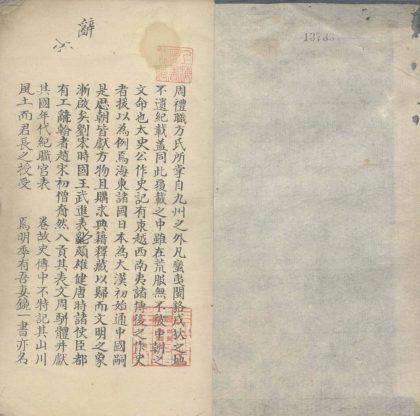 周禮職方氏所掌自九州之外凡蠻夷閩貉戎狄之地
不遺紀載蓋同此覆載之中雖在荒服無不被聖朝之
文命也太史公作史記有東越西南夷諸傳後之作史
者援以為例焉海東諸國日本為大漢初始通中國嗣
是思朝皆獻方物且購求典籍釋藏以歸而文明之象
漸啟矣劉宋時國王武進表彬頗雄健唐時諸使臣都
有工辭翰者趙宋初僧奝然入貢其表文周駢體并獻
其國年代紀職官表 卷故史傳中不特記其山川
風土而君長之授受 焉明季有吾妻鏡一書亦名
辭
13733